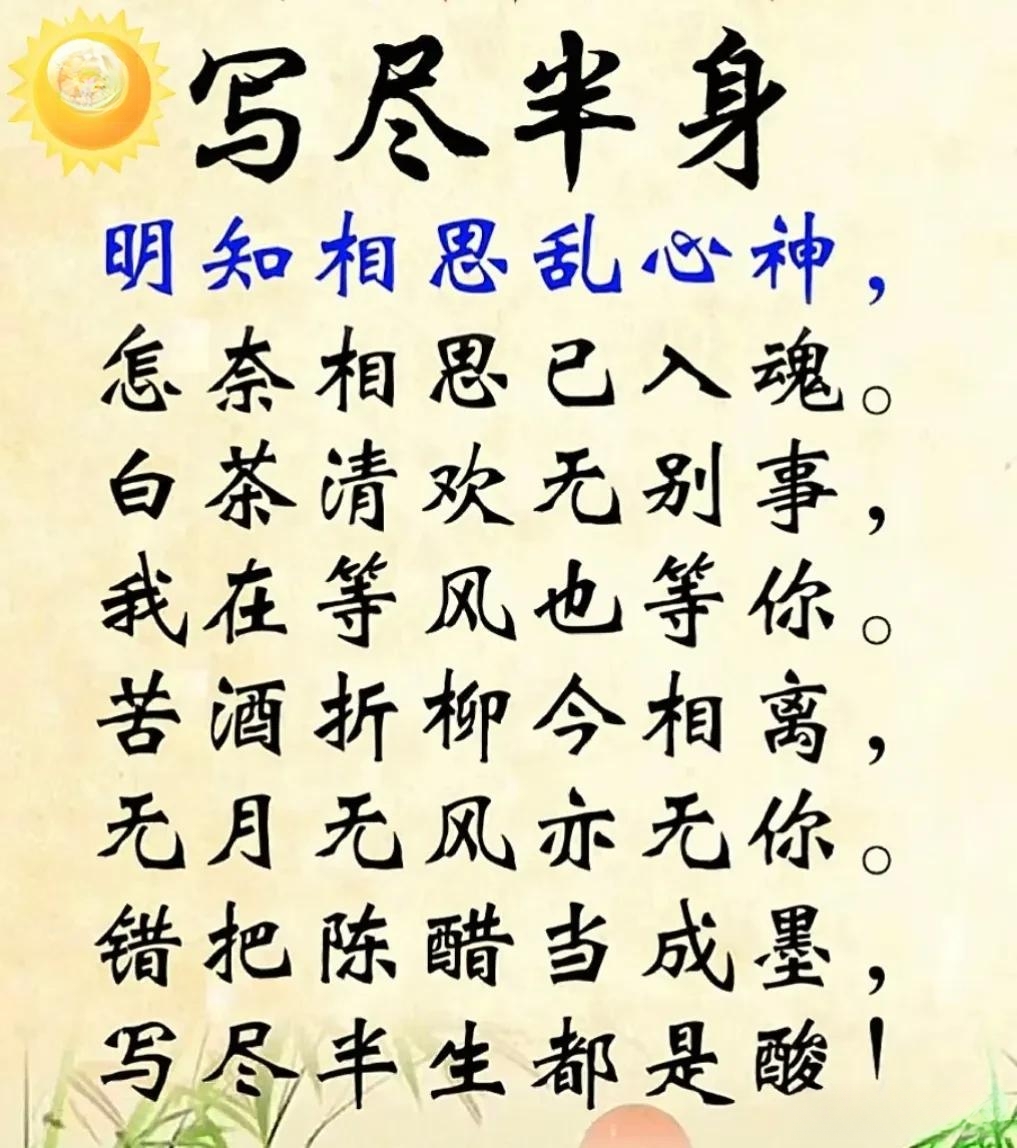 写尽半身
明知相思乱心神，
怎奈相思已入魂。
白茶清欢无别事，
我在等风也等你。
苦酒折柳今相离，
无月无风亦无你。
错把陈醋当成墨，
写尽半生都是酸！